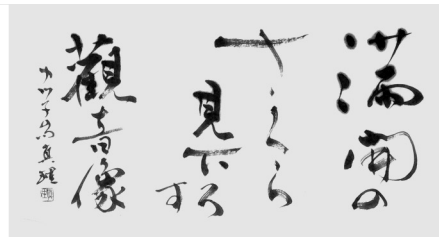 満開の
さくら
見下ろす
觀音像